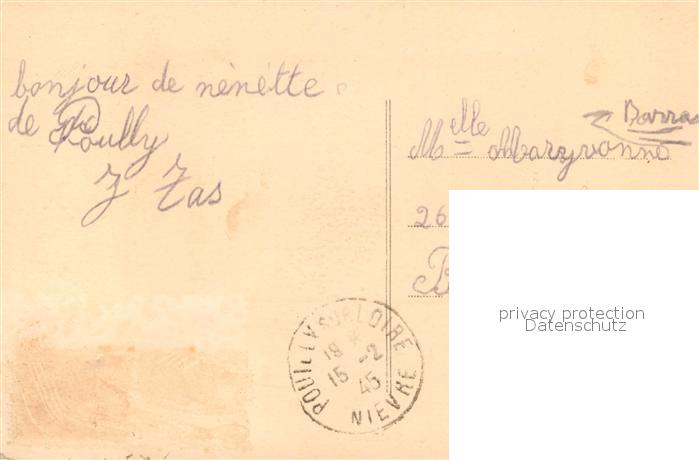 bonjour de nènétte
de Poully
J Zas
Barra
Melle Maryvonne
26
B
privacy protection
Datenschutz
POUILLY SUR LOIRE
19 -2
15 45
NIEVRE